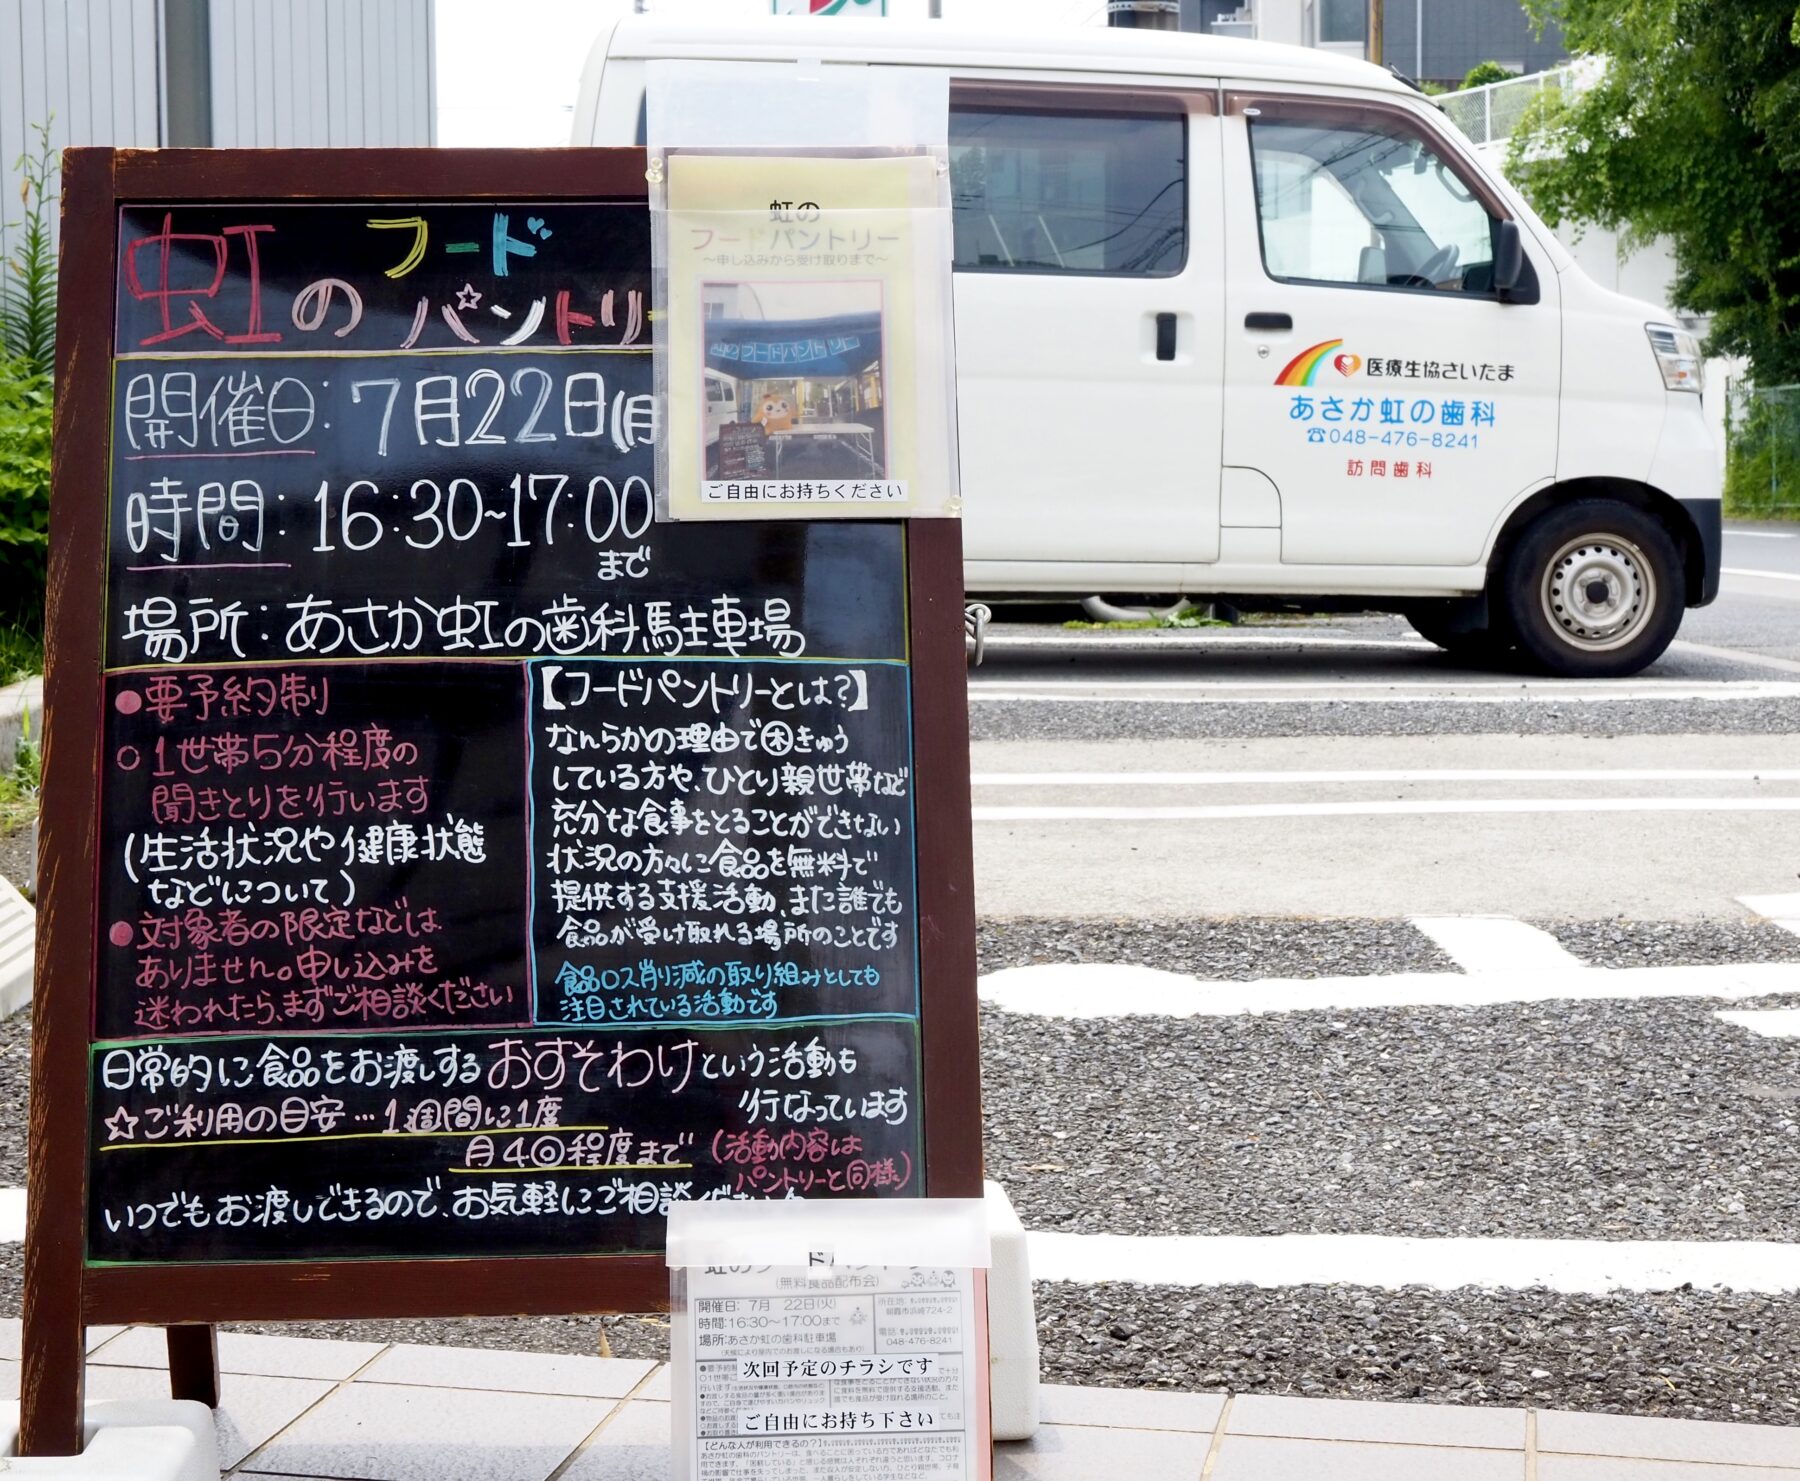 虹の フード
パントリー
開催日: 7月22日(月
時間: 16:30~17:00
まで
場所: あさか虹の歯科駐車場
●要予約制
○1世帯5分程度の
聞きとりを行います
(生活状況や健康状態
などについて)
●対象者の限定などは
ありません。申し込みを
迷われたら、まずご相談ください
【フードパントリーとは?】
なんらかの理由で困きゅう
している方や、ひとり親世帯など
充分な食事をとることができない
状況の方々に食品を無料で
提供する支援活動、また誰でも
食品が受け取れる場所のことです
食品ロス削減の取り組みとしても
注目されている活動です
日常的に食品をお渡しするおすそわけという活動も
行なっています
☆ご利用の目安…1週間に1度
月4回程度まで
(活動内容は
パントリーと同様)
いつでもお渡しできるので、お気軽にご相談ください
虹の
フードパントリー
～申し込みから受け取りまで～
虹のフードパントリー
ご自由にお持ちください
医療生協さいたま
あさか虹の歯科
☎048-476-8241
訪問歯科
虹のフードパントリー
(無料食品配布会)
開催日: 7月 22日(火)
時間:16:30～17:00まで
場所:あさか虹の歯科駐車場
(天候により屋内でのお渡しになる場合もあり)
所在地:
朝霞市浜崎724-2
電話:
048-476-8241
次回予定のチラシです
ご自由にお持ち下さい
【どんな人が利用できるの?】